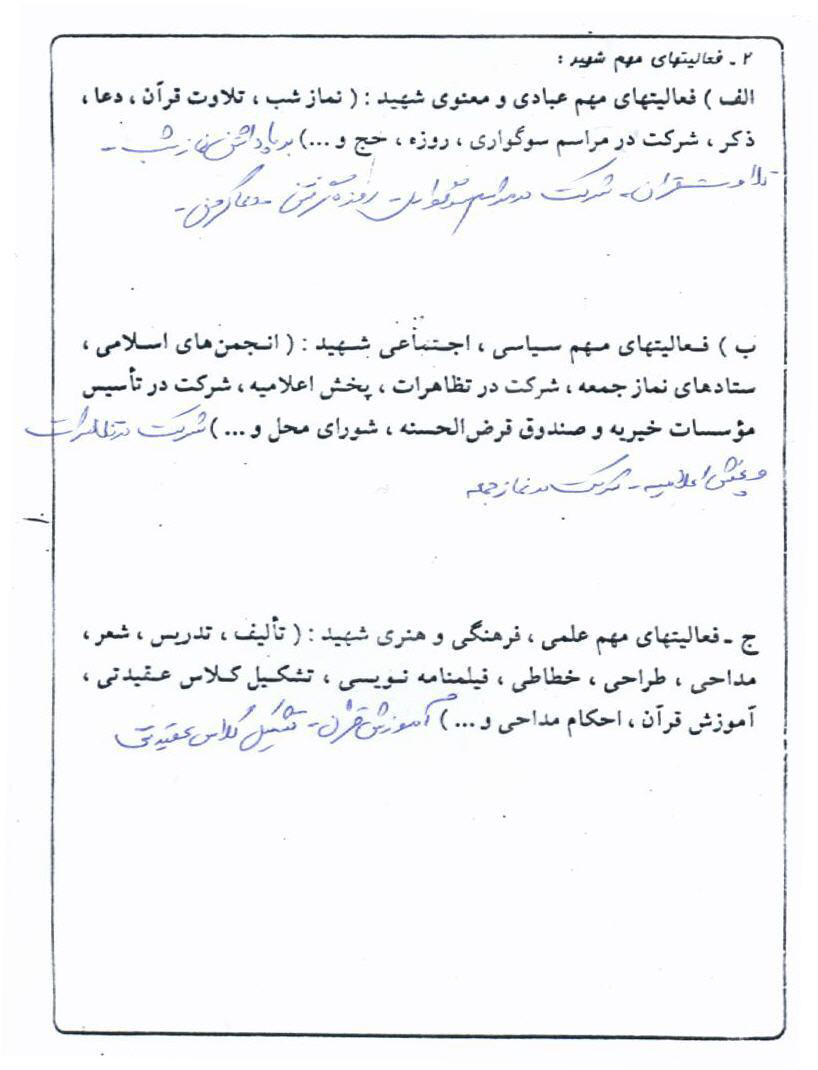 ۲ ـ فعالیتهای مهم شهید :
الف ) فعالیتهای مهم عبادی و معنوی شهید : ( نماز شب ، تلاوت قرآن ، دعا ،
ذکر ، شرکت در مراسم سوگواری ، روزه ، حج و ...) برپا داشتن نماز شب -
تلاوت قران - شرکت در مراسم سوگواری - روزه گرفتن - دعا کردن -
ب ) فعالیتهای مهم سیاسی ، اجتماعی شهید : ( انجمن‌های اسلامی ،
ستادهای نماز جمعه ، شرکت در تظاهرات ، پخش اعلامیه ، شرکت در تأسیس
مؤسسات خیریه و صندوق قرض‌الحسنه ، شورای محل و ... ) شرکت در تظاهرات
و پخش اعلامیه - شرکت در نماز جمعه
ج ـ فعالیتهای مهم علمی ، فرهنگی و هنری شهید : ( تألیف ، تدریس ، شعر ،
مداحی ، طراحی ، خطاطی ، فیلمنامه نویسی ، تشکیل کلاس عقیدتی ،
آموزش قرآن ، احکام مداحی و ... ) آموزش قرآن - تشکیل کلاس عقیدتی